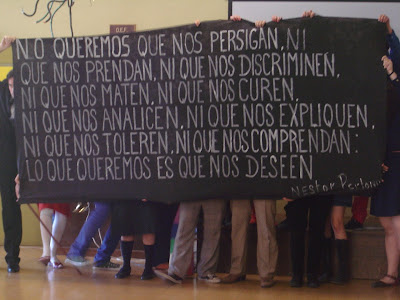 NO QUEREMOS QUE NOS PERSIGAN, NI
QUE NOS PRENDAN, NI QUE NOS DISCRIMINEN,
NI QUE NOS MATEN, NI QUE NOS CUREN,
NI QUE NOS ANALICEN, NI QUE NOS EXPLIQUEN,
NI QUE NOS TOLEREN, NI QUE NOS COMPRENDAN:
LO QUE QUEREMOS ES QUE NOS DESEEN
Néstor